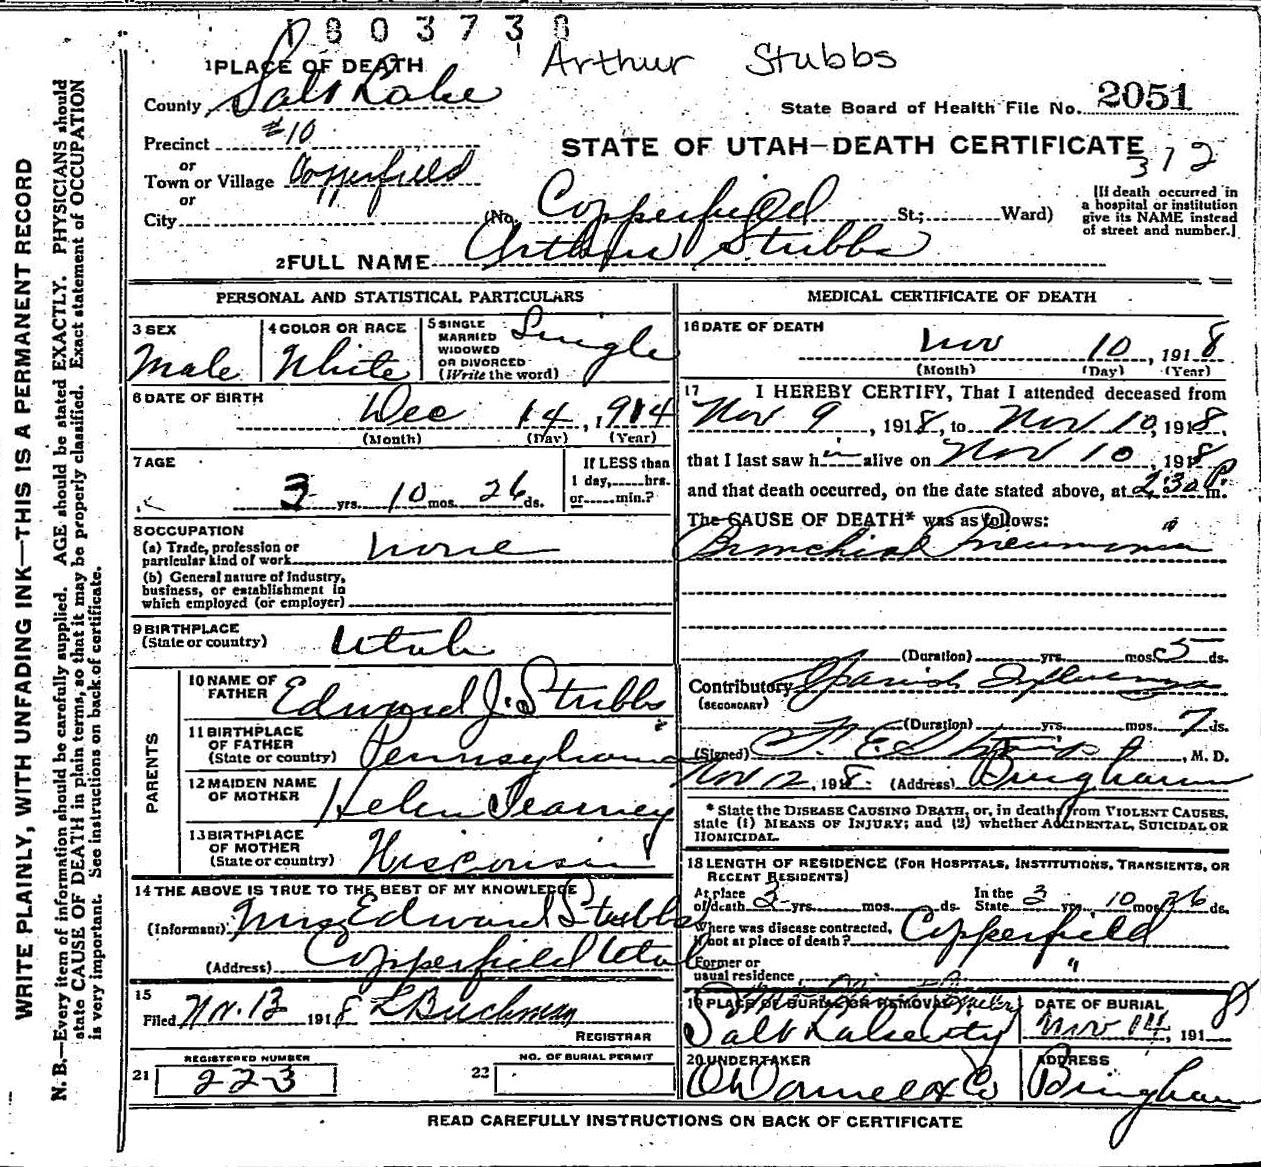 1803738
Arthur Stubbs
1 PLACE OF DEATH
County Salt Lake
State Board of Health File No. 2051
Precinct #10
STATE OF UTAH—DEATH CERTIFICATE
312
or
Town or Village Copperfield
or
City
(No. Copperfield St.; Ward)
[If death occurred in
a hospital or institution
give its NAME instead
of street and number.]
2 FULL NAME Arthur Stubbs
PERSONAL AND STATISTICAL PARTICULARS
3 SEX
Male
4 COLOR OR RACE
White
5 SINGLE
MARRIED
WIDOWED
OR DIVORCED
(Write the word)
Single
6 DATE OF BIRTH
Dec 14, 1914
(Month) (Day) (Year)
7 AGE
3 yrs. 10 mos. 26 ds.
If LESS than
1 day, hrs.
or min.?
8 OCCUPATION
(a) Trade, profession or
particular kind of work none
(b) General nature of Industry,
business, or establishment in
which employed (or employer)
9 BIRTHPLACE
(State or country) Utah
PARENTS
10 NAME OF
FATHER Edward J. Stubbs
11 BIRTHPLACE
OF FATHER
(State or country) Pennsylvania
12 MAIDEN NAME
OF MOTHER Helen Tearney
13 BIRTHPLACE
OF MOTHER
(State or country) Wisconsin
14 THE ABOVE IS TRUE TO THE BEST OF MY KNOWLEDGE
(Informant) Mrs Edward Stubbs
(Address) Copperfield Utah
15
Filed Nov. 13 1918 L Buchman
REGISTRAR
REGISTERED NUMBER
21 223
NO. OF BURIAL PERMIT
22
MEDICAL CERTIFICATE OF DEATH
16 DATE OF DEATH
Nov 10, 1918
(Month) (Day) (Year)
17 I HEREBY CERTIFY, That I attended deceased from
Nov 9, 1918, to Nov 10, 1918,
that I last saw him alive on Nov 10, 1918
and that death occurred, on the date stated above, at 2 30 P m.
The CAUSE OF DEATH* was as follows:
Bronchial Pneumonia
(Duration) yrs. mos. 5 ds.
Contributory Spanish Influenza
(SECONDARY)
(Duration) yrs. mos. 7 ds.
(Signed) , M. D.
Nov 12, 1918. (Address) Bingham
* State the DISEASE CAUSING DEATH, or, in deaths from VIOLENT CAUSES,
state (1) MEANS OF INJURY; and (2) whether ACCIDENTAL, SUICIDAL OR
HOMICIDAL.
18 LENGTH OF RESIDENCE (FOR HOSPITALS, INSTITUTIONS, TRANSIENTS, OR
RECENT RESIDENTS)
At place
of death 3 yrs. mos. ds.
In the
State 3 yrs. 10 mos. 26 ds.
Where was disease contracted,
if not at place of death? Copperfield
Former or
usual residence "
19 PLACE OF BURIAL OR REMOVAL
Salt Lake City
DATE OF BURIAL
Nov 14, 1918
20 UNDERTAKER
O'Donnell & Co
ADDRESS
Bingham
READ CAREFULLY INSTRUCTIONS ON BACK OF CERTIFICATE
WRITE PLAINLY, WITH UNFADING INK—THIS IS A PERMANENT RECORD
N. B.—Every item of information should be carefully supplied. AGE should be stated EXACTLY. PHYSICIANS should
state CAUSE OF DEATH in plain terms, so that it may be properly classified. Exact statement of OCCUPATION
is very important. See instructions on back of certificate.